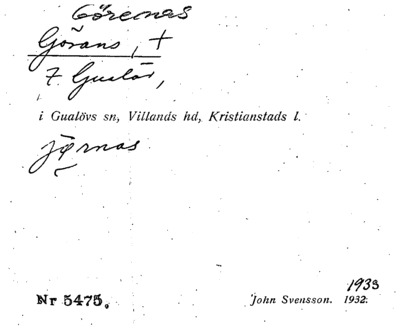 Görenas
Görans, +
7 Gualöv,
i Gualövs sn, Villands hd, Kristianstads l.
jörnas
Nr 5475.
1933
John Svensson. 1932.